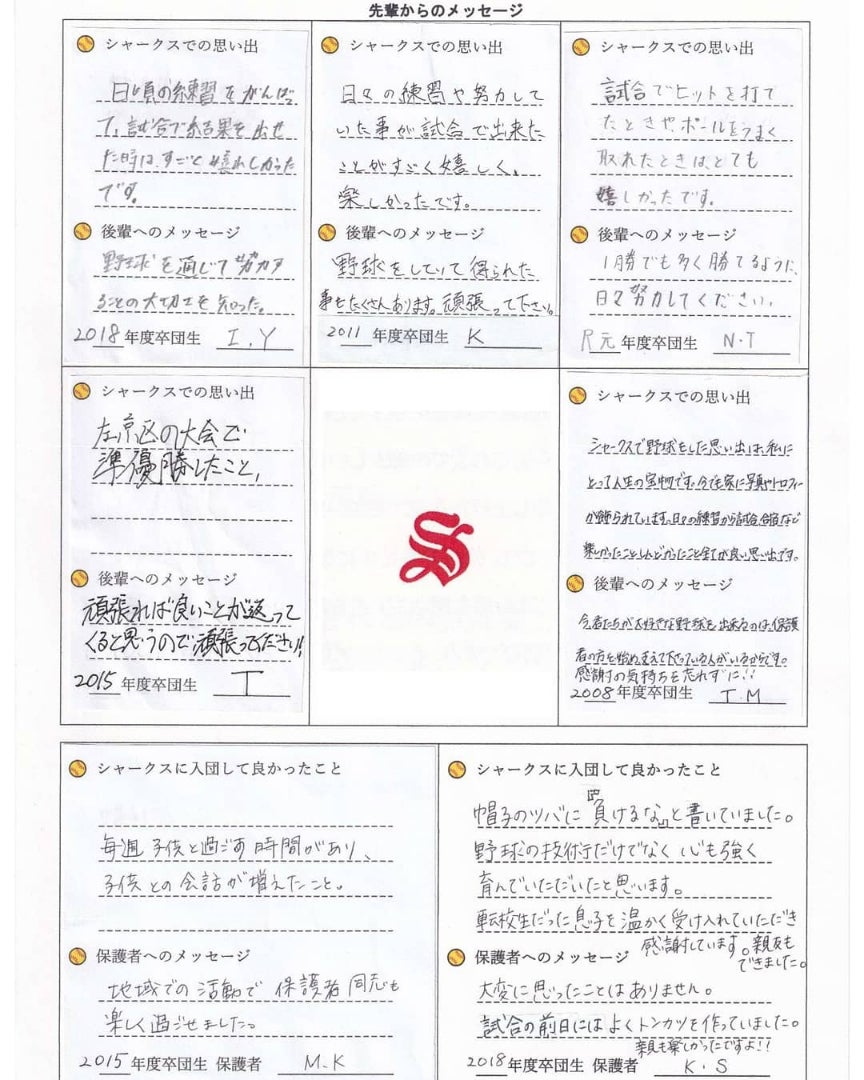 先輩からのメッセージ
シャークスでの思い出
日頃の練習をがんばっ
て、試合で結果を出せ
た時は、すごく嬉しかった
です。
後輩へのメッセージ
野球を通じて努力す
ることの大切さを知った。
2018年度卒団生 I.Y
シャークスでの思い出
日々の練習や努力して
いた事が試合で出来た
ことがすごく嬉しく、
楽しかったです。
後輩へのメッセージ
野球をしていて得られた
事もたくさんあります。頑張って下さい。
2011年度卒団生 K
シャークスでの思い出
試合でヒットを打て
たときや、ボールをうまく
取れたときは、とても
嬉しかったです。
後輩へのメッセージ
1勝でも多く勝てるように、
日々努力してください。
R元年度卒団生 N.T
シャークスでの思い出
左京区の大会で
準優勝したこと、
後輩へのメッセージ
頑張れば良いことが返って
くると思うので頑張ってください!
2015年度卒団生 T
S
シャークスでの思い出
シャークスで野球をした思い出は、私に
とって人生の宝物です。今でも家に写真やトロフィー
が飾られています。日々の練習から試合、合宿など
楽しかったこと、しんどかったこと全てが良い思い出です。
後輩へのメッセージ
今君たちが大好きな野球を出来るのは、保護
者の方を始め、支えて下さっている人がいるからです。
感謝の気持ちを忘れずに!!
2008年度卒団生 T.M
シャークスに入団して良かったこと
毎週 子供と過ごす時間があり、
子供との会話が増えたこと。
保護者へのメッセージ
地域での活動で 保護者同志も
楽しく過ごせました。
2015年度卒団生 保護者 M.K
シャークスに入団して良かったこと
帽子のツバに『負けるな』と書いていました。
野球の技術だけでなく 心も強く
育んでいただいたと思います。
転校生だった息子を温かく受け入れていただき
感謝しています。親友も
できました。
保護者へのメッセージ
大変に思ったことはありません。
試合の前日にはよくトンカツを作っていました。
親も楽しかったですよ!!
2018年度卒団生 保護者 K.S